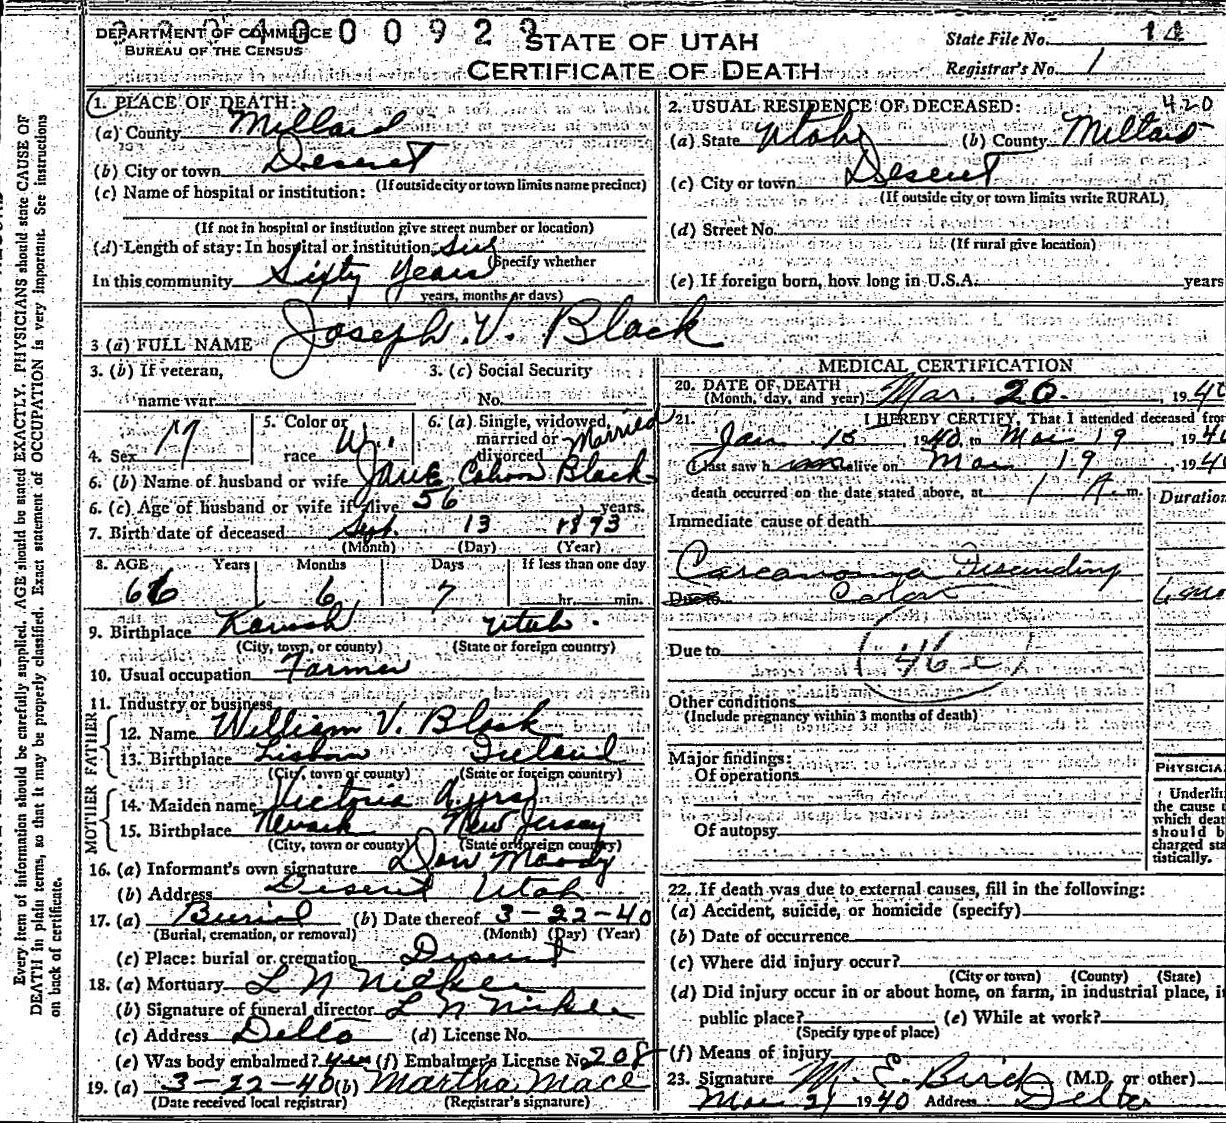 DEPARTMENT OF COMMERCE
BUREAU OF THE CENSUS
STATE OF UTAH
CERTIFICATE OF DEATH
State File No. 14
Registrar's No. 1
Every item of information should be carefully supplied. AGE should be stated EXACTLY. PHYSICIANS should state CAUSE OF
DEATH in plain terms, so that it may be properly classified. Exact statement of OCCUPATION is very important. See instructions
on back of certificate.
1. PLACE OF DEATH:
(a) County Millard
(b) City or town Deseret
(If outside city or town limits name precinct)
(c) Name of hospital or institution:
(If not in hospital or institution give street number or location)
(d) Length of stay: In hospital or institution
(Specify whether
In this community Sixty Years
years, months or days)
2. USUAL RESIDENCE OF DECEASED: 420
(a) State Utah (b) County Millard
(c) City or town Deseret
(If outside city or town limits write RURAL)
(d) Street No.
(If rural give location)
(e) If foreign born, how long in U.S.A. years
3 (a) FULL NAME Joseph V. Black
3. (b) If veteran,
name war
3. (c) Social Security
No.
4. Sex M
5. Color or
race W.
6. (a) Single, widowed,
married or
divorced Married
6. (b) Name of husband or wife Jane Cahoon Black
6. (c) Age of husband or wife if alive 56 years.
7. Birth date of deceased Sept. 13 1873
(Month) (Day) (Year)
8. AGE Years Months Days If less than one day
66 6 7 hr. min.
9. Birthplace Kanosh Utah.
(City, town, or county) (State or foreign country)
10. Usual occupation Farmer
11. Industry or business
FATHER
12. Name William V. Black
13. Birthplace Lisburn Ireland
(City, town or county) (State or foreign country)
MOTHER
14. Maiden name Victoria Ayers
15. Birthplace Newark New Jersey
(City, town or county) (State or foreign country)
16. (a) Informant's own signature Don Moody
(b) Address Deseret Utah
17. (a) Burial (b) Date thereof 3-22-40
(Burial, cremation, or removal) (Month) (Day) (Year)
(c) Place: burial or cremation Deseret
18. (a) Mortuary L N Nickle
(b) Signature of funeral director L N Nickle
(c) Address Delta (d) License No.
(e) Was body embalmed? yes (f) Embalmer's License No. 208
19. (a) 3-22-40 (b) Martha Mace
(Date received local registrar) (Registrar's signature)
MEDICAL CERTIFICATION
20. DATE OF DEATH
(Month, day, and year) Mar. 20. , 1940
21. I HEREBY CERTIFY, That I attended deceased from
Jan 15 , 1940, to Mar 19 , 1940
I last saw h im alive on Mar 19 , 1940
death occurred on the date stated above, at 1 A. m.
Duration
Immediate cause of death
Carcanoma Discending
Due to Colon
Due to
46e
Other conditions
(Include pregnancy within 3 months of death)
Major findings:
Of operations
Of autopsy
PHYSICIA
Underlin
the cause
which deat
should b
charged sta
tistically.
22. If death was due to external causes, fill in the following:
(a) Accident, suicide, or homicide (specify)
(b) Date of occurrence
(c) Where did injury occur?
(City or town) (County) (State)
(d) Did injury occur in or about home, on farm, in industrial place, in
public place? (e) While at work?
(Specify type of place)
(f) Means of injury
23. Signature M. E. Bird (M.D. or other)
Mar 21 1940 Address Delta